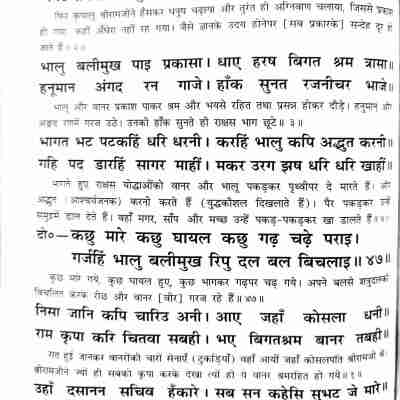 फिर कृपालु श्रीरामजीने हँसकर धनुष चढ़ाया और तुरंत ही अग्निबाण चलाया, जिससे प्रकाश
हो गया, कहीं अँधेरा नहीं रह गया। जैसे ज्ञानके उदय होनेपर [सब प्रकारके] सन्देह दूर हो
जाते हैं॥ २॥
भालु बलीमुख पाइ प्रकासा। धाए हरष बिगत श्रम त्रासा॥
हनूमान अंगद रन गाजे। हाँक सुनत रजनीचर भाजे॥
भालु और वानर प्रकाश पाकर श्रम और भयसे रहित तथा प्रसन्न होकर दौड़े। हनुमान् और
अङ्गद रणमें गरज उठे। उनकी हाँक सुनते ही राक्षस भाग छूटे॥ ३॥
भागत भट पटकहिं धरि धरनी। करहिं भालु कपि अद्भुत करनी॥
गहि पद डारहिं सागर माहीं। मकर उरग झष धरि धरि खाहीं॥
भागते हुए राक्षस योद्धाओंको वानर और भालू पकड़कर पृथ्वीपर दे मारते हैं। और
अद्भुत (आश्चर्यजनक) करनी करते हैं (युद्धकौशल दिखलाते हैं)। पैर पकड़कर उन्हें
समुद्रमें डाल देते हैं। वहाँ मगर, साँप और मच्छ उन्हें पकड़-पकड़कर खा डालते हैं॥
दो०—कछु मारे कछु घायल कछु गढ़ चढ़े पराइ।
गर्जहिं भालु बलीमुख रिपु दल बल बिचलाइ॥ ४७॥
कुछ मारे गये, कुछ घायल हुए, कुछ भागकर गढ़पर चढ़ गये। अपने बलसे शत्रुदलको
विचलित करके रीछ और वानर [वीर] गरज रहे हैं॥ ४७॥
निसा जानि कपि चारिउ अनी। आए जहाँ कोसला धनी॥
राम कृपा करि चितवा सबही। भए बिगतश्रम बानर तबही॥
रात हुई जानकर वानरोंकी चारों सेनाएँ (टुकड़ियाँ) वहाँ आयीं जहाँ कोसलपति श्रीरामजी थे।
श्रीरामजीने ज्यों ही सबको कृपा करके देखा त्यों ही ये वानर श्रमरहित हो गये॥ १॥
उहाँ दसानन सचिव हँकारे। सब सन कहेसि सुभट जे मारे॥